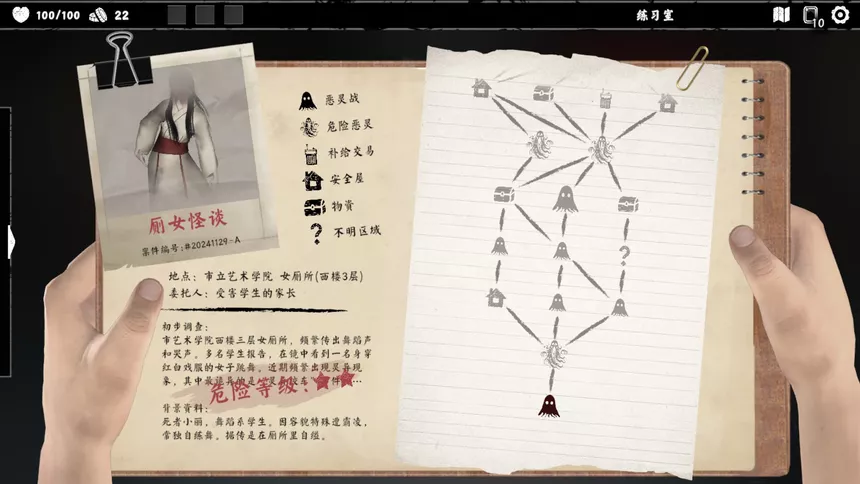 100/100
22
练习室
10
恶灵战
危险恶灵
补给交易
安全屋
物资
不明区域
?
厕女怪谈
案件编号:#20241129-A
地点: 市立艺术学院 女厕所(西楼3层)
委托人: 受害学生的家长
初步调查:
市艺术学院西楼三层女厕所, 频繁传出舞蹈声
和哭声。多名学生报告, 在镜中看到一名身穿
红白戏服的女子跳舞。近期频繁出现灵异现
象, 其中最
危险等级: ★★
背景资料:
死者小丽, 舞蹈系学生。因容貌特殊遭霸凌,
常独自练舞。据传是在厕所里自缢。
?